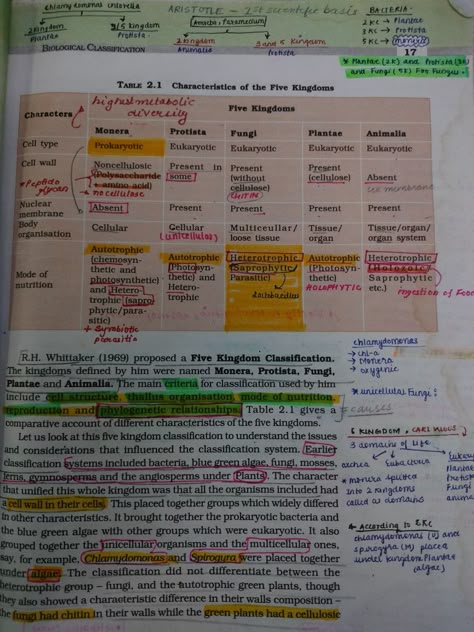 chlamydomonas chlorella
2 Kingdom
Plantae
5 Kingdom
Protista
ARISTOTLE - 1st scientific basis
Amoeba, Paramecium
2 Kingdom
Animalia
3 and 5 Kingdom
Protista
BACTERIA-
2KC → Plantae
3KC → Protista
5KC → Monera
BIOLOGICAL CLASSIFICATION
17
* Plantae (2K) and Protista
and Fungi (5K) For Fungus.
TABLE 2.1 Characteristics of the Five Kingdoms
highest metabolic
diversity
Characters
Five Kingdoms
Monera Protista Fungi Plantae Animalia
Cell type Prokaryotic Eukaryotic Eukaryotic Eukaryotic Eukaryotic
Cell wall Noncellulosic (Polysaccharide + amino acid) Present in some Present (without cellulose) Present (cellulose) Absent
* Peptidoglycan
no cellulose
CHITIN
Nuclear membrane Absent Present Present Present Present
Body organisation Cellular Cellular Multicellular/ loose tissue Tissue/ organ Tissue/organ/ organ system
(unicellular)
Mode of nutrition Autotrophic (chemosynthetic and photosynthetic) and Heterotrophic (saprophytic/parasitic) Autotrophic (Photosynthetic) and Heterotrophic Heterotrophic (Saprophytic Parasitic) Autotrophic (Photosynthetic) Heterotrophic (Holozoic Saprophytic etc.)
+ Symbiotic
parasitic
HOLOPHYTIC
ingestion of Food
R.H. Whittaker (1969) proposed a Five Kingdom Classification.
The kingdoms defined by him were named Monera, Protista, Fungi,
Plantae and Animalia. The main criteria for classification used by him
include cell structure, thallus organisation, mode of nutrition,
reproduction and phylogenetic relationships. Table 2.1 gives a
comparative account of different characteristics of the five kingdoms.
Let us look at this five kingdom classification to understand the issues
and considerations that influenced the classification system. Earlier
classification systems included bacteria, blue green algae, fungi, mosses,
ferns, gymnosperms and the angiosperms under 'Plants'. The character
that unified this whole kingdom was that all the organisms included had
a cell wall in their cells. This placed together groups which widely differed
in other characteristics. It brought together the prokaryotic bacteria and
the blue green algae with other groups which were eukaryotic. It also
grouped together the unicellular organisms and the multicellular ones,
say, for example, Chlamydomonas and Spirogyra were placed together
under algae. The classification did not differentiate between the
heterotrophic group – fungi, and the autotrophic green plants, though
they also showed a characteristic difference in their walls composition –
the fungi had chitin in their walls while the green plants had a cellulosic
chlamydomonas
→ chl-a
→ Monera
→ oxygenic
* unicellular Fungi:
causes
6 KINGDOM, CARL WOESE
3 domains of life
archea
Eubacteria
Plantae
Protista
Fungi
* monera splitted
into 2 kingdoms
called as domains
* According to 2KC
chlamydomonas (U) and
spirogyra (M) placed
under kingdom Plantae
(algae)